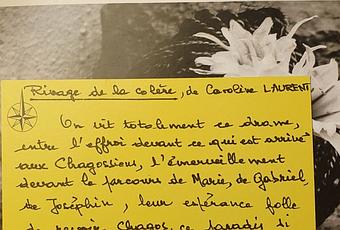 Rivage de la colère, de Caroline LAURENT
On vit totalement ce drame,
entre l'effroi devant ce qui est arrivé
aux Chagossiens, l'émerveillement
devant le parcours de Marie, de Gabriel,
de Joséphin, leur espérance folle
de revoir Chagos, ce paradis si